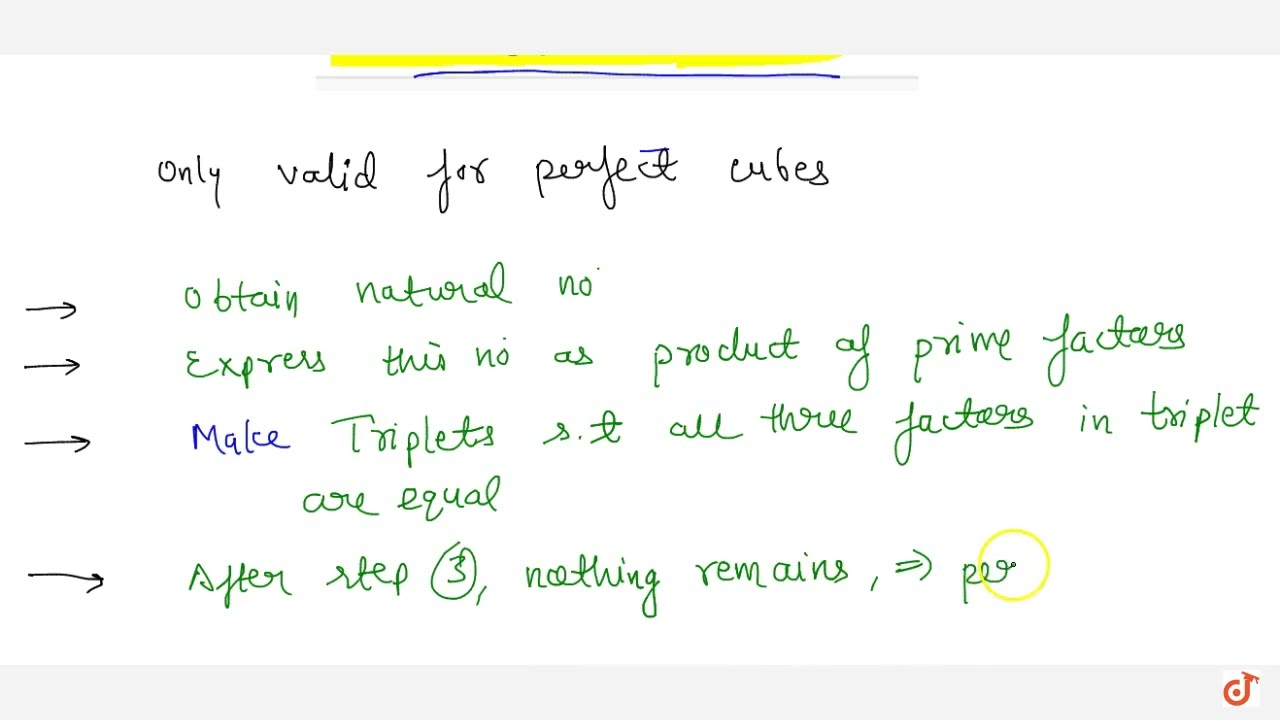 Only valid for perfect cubes
→ Obtain natural no.
→ Express this no. as product of prime factors
→ Make Triplets s.t all three factors in triplet
are equal
→ After step ③, nothing remains, ⇒ per